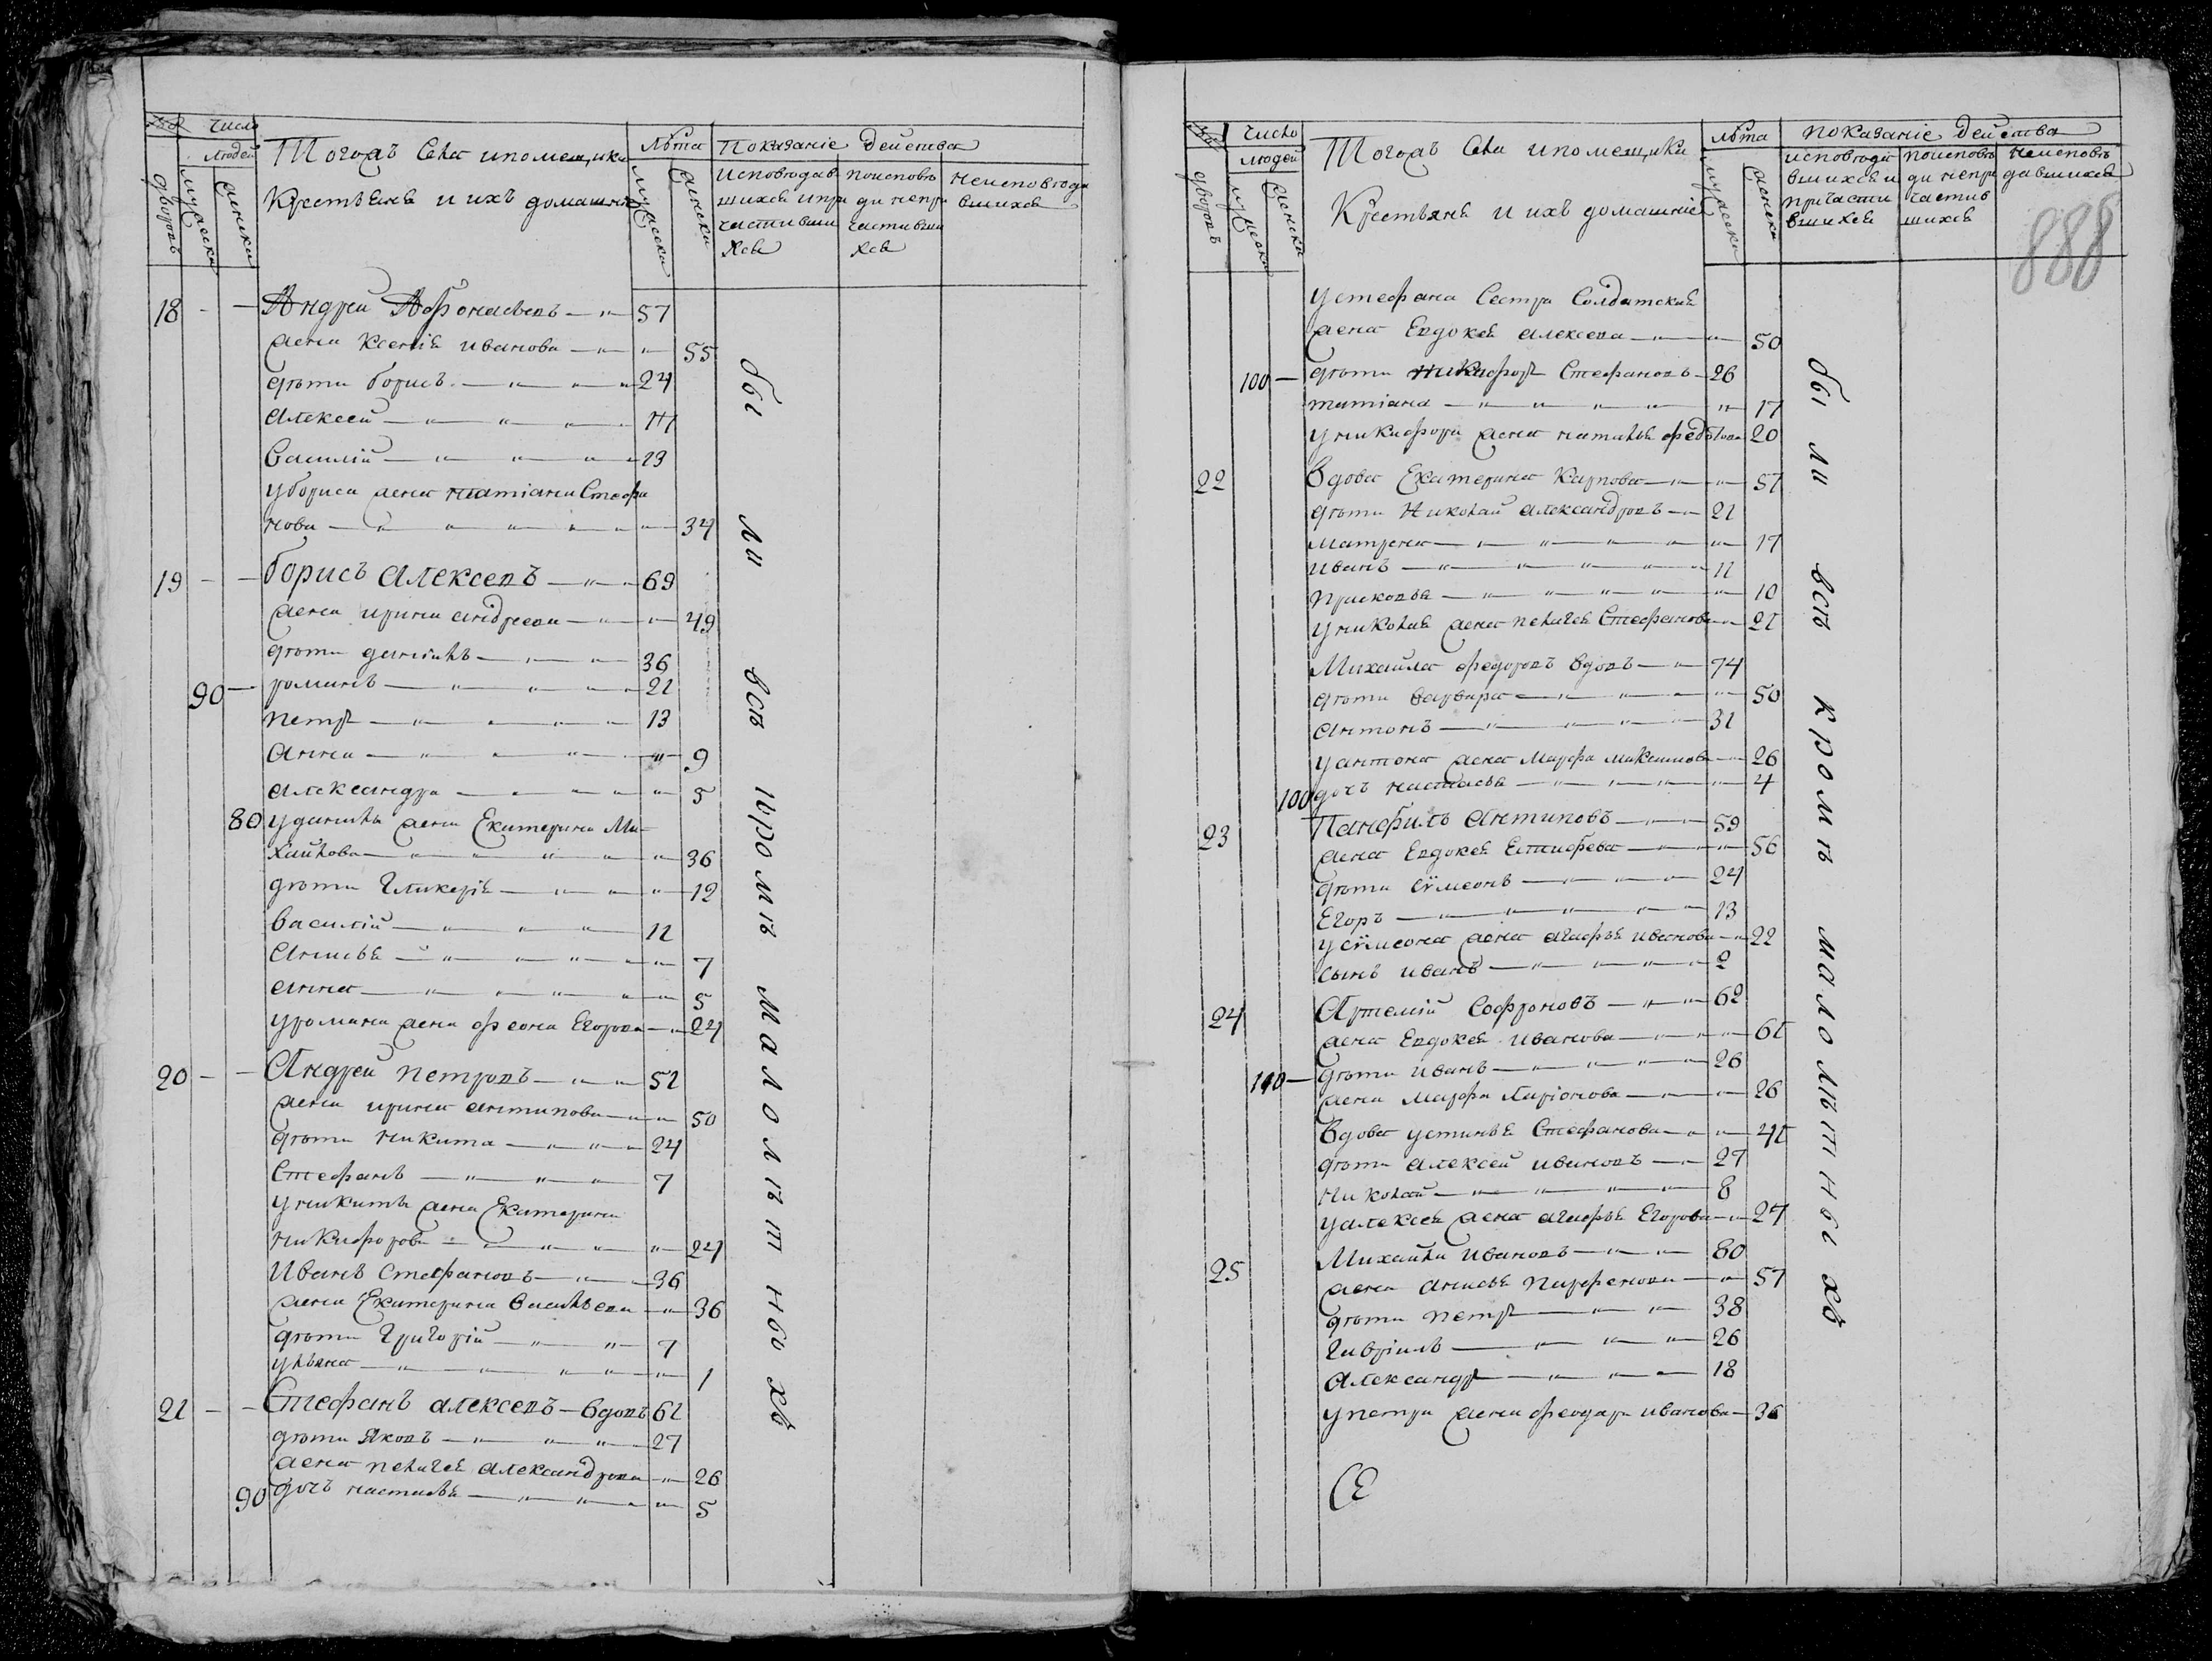 число
людей
дворовъ
мужеска
женска
Тогожъ Села ипомещика
Крестьяне и ихъ домашние
Лѣта
мужеска
женска
Показаніе действа
Исповедав
шихся ипри
частивши
хся
поисповѣ
ди непри
частивши
хся
неисповеда
вшихся
18 - - Андрей Афонасьевъ 57
жена Ксенія иванова 55
дѣти борисъ 24
алексей 14
василій 13
убориса жена татіана Стефа
нова 34
19 - - борисъ алексеевъ 69
жена ирина андреева 49
дѣти данилъ 36
90 романъ 21
петръ 13
анна 9
александра 5
80 уданила жена Екатерина Ми
хайлова 36
дѣти Гликерія 12
василій 11
анисья 7
анна 5
уромана жена фиона Егорова 24
20 - - Андрей петровъ 52
жена ирина антипова 50
дѣти никита 24
Стефанъ 7
уникиты жена Екатерина
никифорова 24
Иванъ Стефановъ 36
жена Екатерина васильева 36
дѣти Григорій 7
ульяна 1
21 - - Стефанъ алексеевъ вдовъ 61
дѣти Яковъ 27
жена пелагея александрова 26
90 дочь настасья 5
бы ли всѣ кромѣ малолѣтныхъ
число
людей
дворовъ
мужеска
женска
Тогожъ Села ипомещика
Крестьяне и ихъ домашніе
лѣта
мужеска
женска
показаніе действа
исповеда
вшихся и
причасти
вшихся
поисповѣ
ди непри
частив
шихся
неисповѣ
давшихся
888
устефана Сестра Солдатская
жена Евдокея алексеева 50
100 дѣти никифоръ Стефановъ 26
татіана 17
уникифора жена наталья федотова 20
22 вдова Екатерина Карпова 57
дѣти Николай александровъ 21
матрена 17
иванъ 11
прасковья 10
униколая жена пелагея Стефанова 21
Михайла федоровъ вдовъ 74
дѣти варвара 50
антонъ 31
уантона жена Марфа максимова 26
100 дочь настасья 4
23 Панфилъ антиповъ 59
жена Евдокея Естифева 56
дѣти сѵмеонъ 24
Егоръ 13
усѵмеона жена агафья иванова 22
сынъ иванъ 2
24 Артемій Софроновъ 62
жена Евдокея иванова 61
110 дѣти иванъ 26
жена Марфа Ларіонова 26
вдова устинья Стефанова 41
дѣти алексей ивановъ 27
николай 8
уалексея жена агафья Егорова 27
25 Михайла ивановъ 80
жена анисья парфенова 57
дѣти петръ 38
Гавріилъ 26
александръ 18
упетра жена феодора иванова 36
бы ли всѣ кромѣ малолѣтныхъ